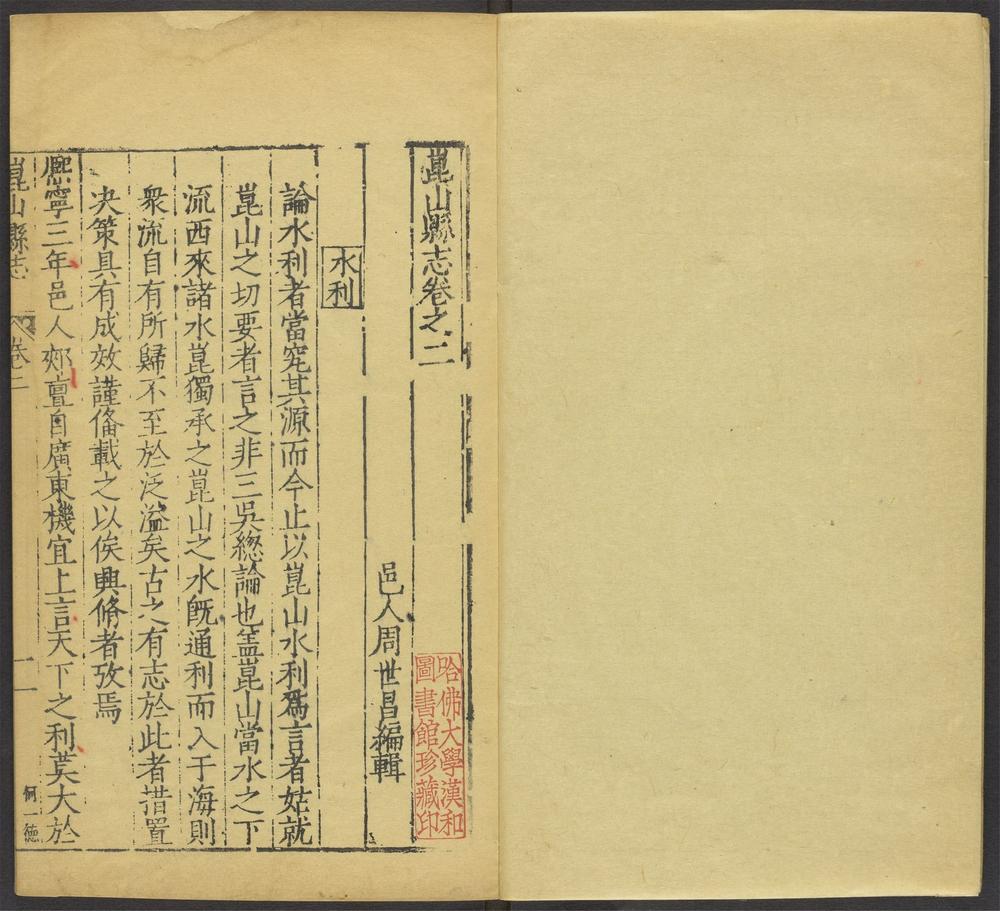 崑山縣志卷之二
哈佛大學漢和
圖書館珍藏印
邑人周世昌編輯
水利
論水利者當究其源而今止以崑山水利爲言者姑就
崑山之切要者言之非三吳緫論也盖崑山當水之下
流西來諸水崑獨承之崑山之水旣通利而入于海則
衆流自有所歸不至於泛溢矣古之有志於此者措置
决策具有成效謹俻載之以俟興脩者攷焉
熈寧三年邑人郟亶自廣東機宜上言天下之利莫大於
崑山縣志 卷二 一 何一德